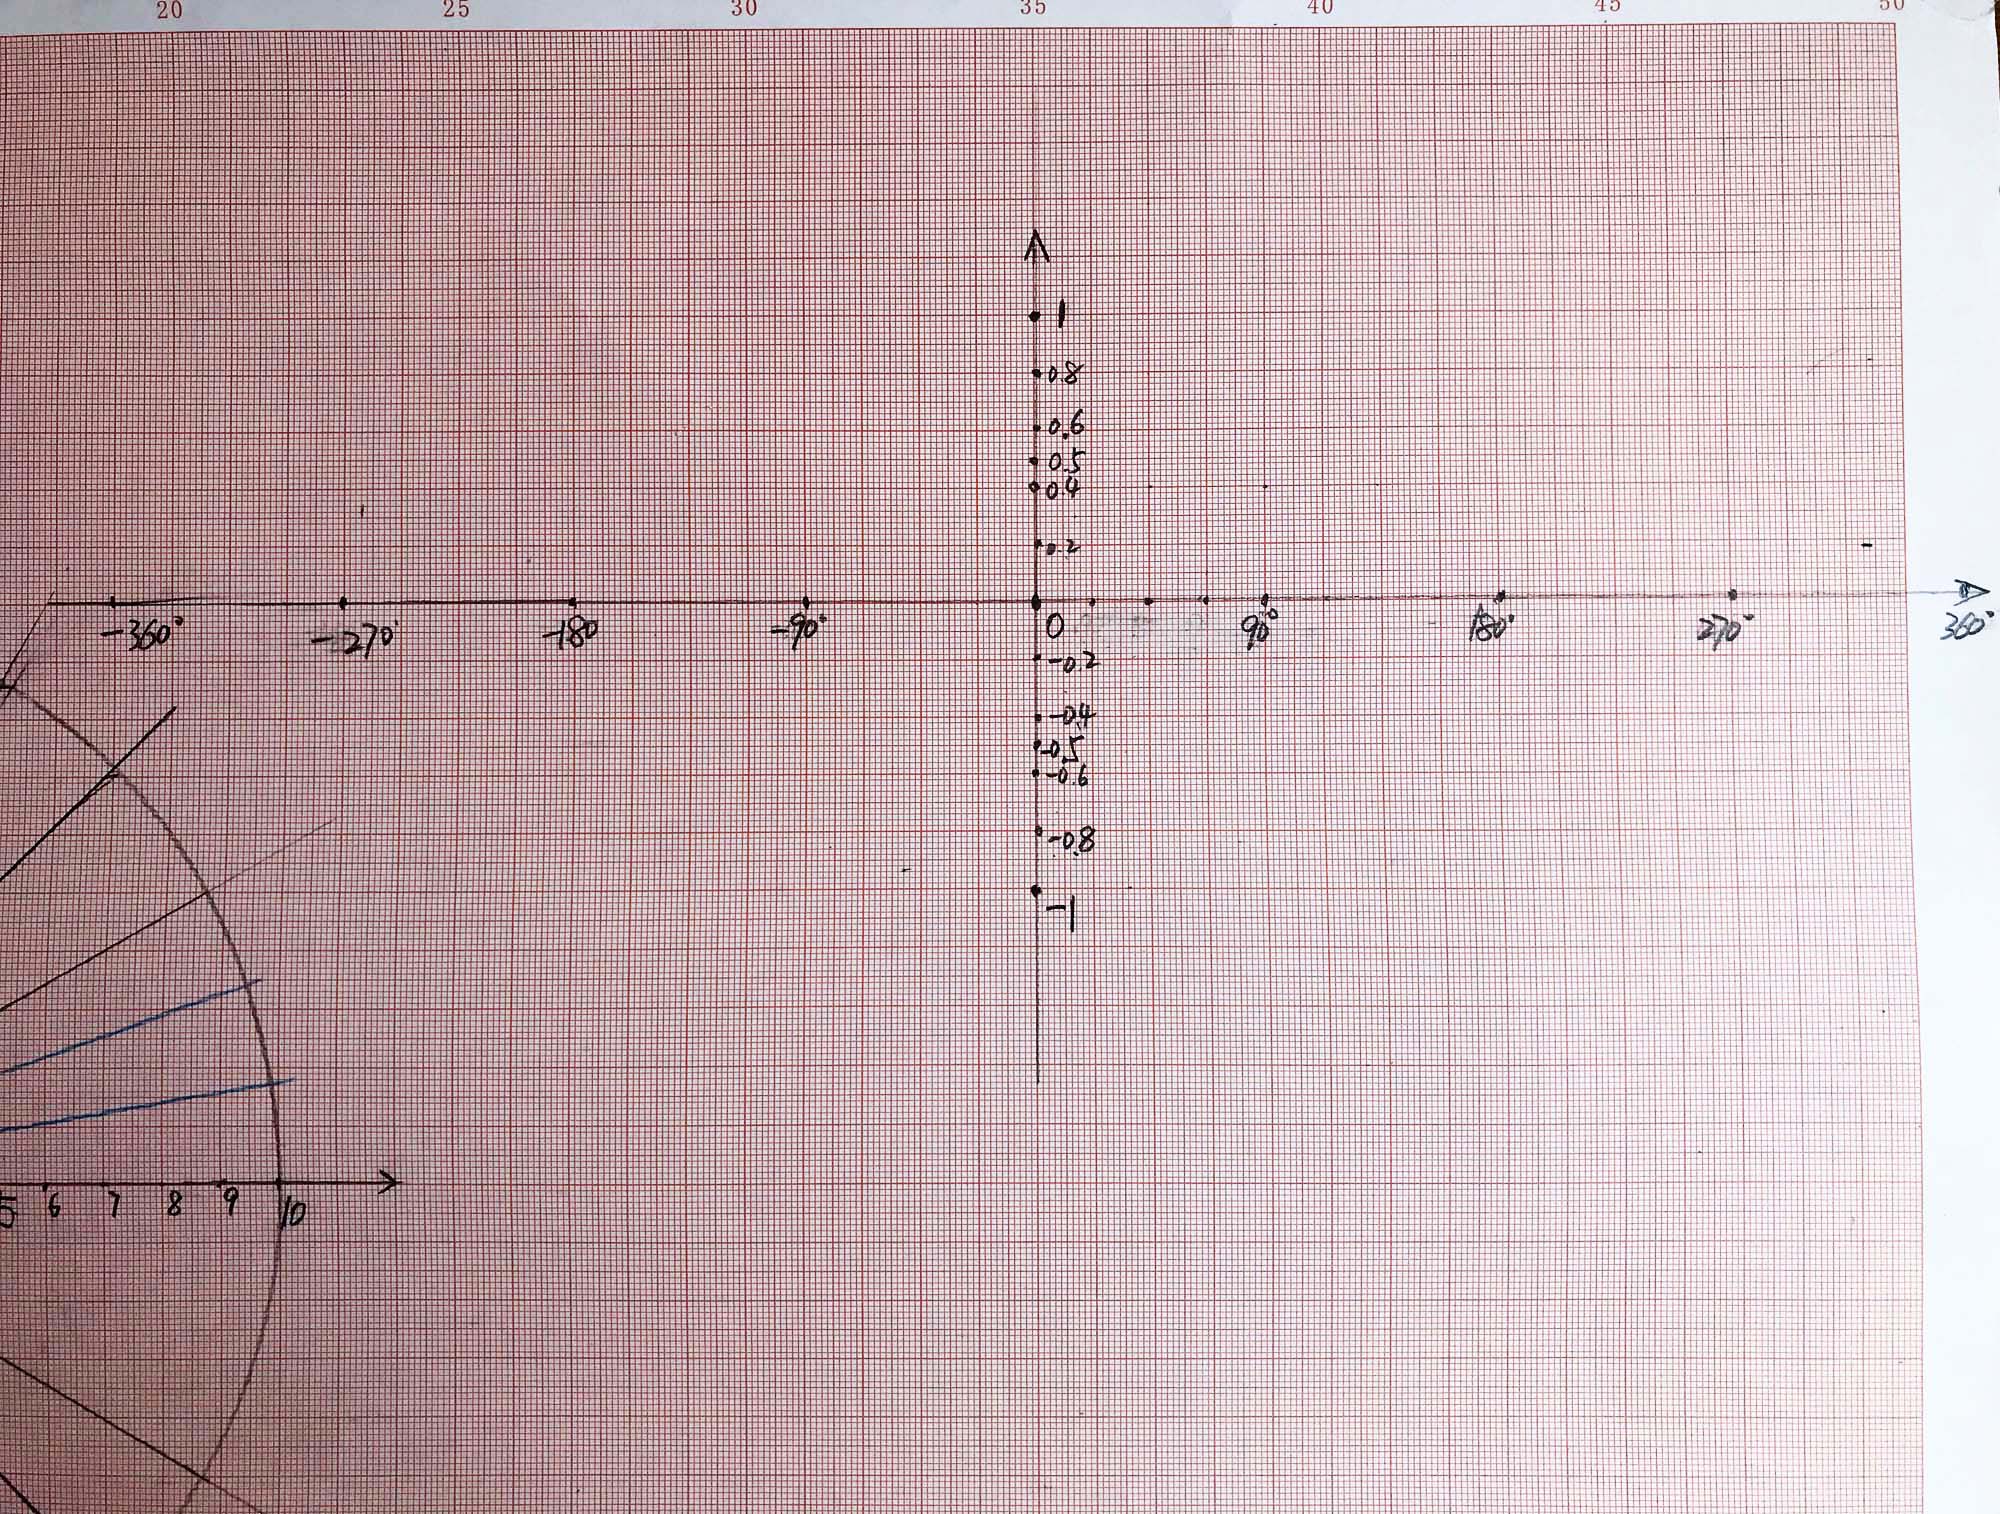 20 25 30 35 40 45 50
1
0.8
0.6
0.5
0.4
0.2
-360° -270° -180 -90° 0 90° 180° 270° 360°
-0.2
-0.4
-0.5
-0.6
-0.8
-1
5 6 7 8 9 10